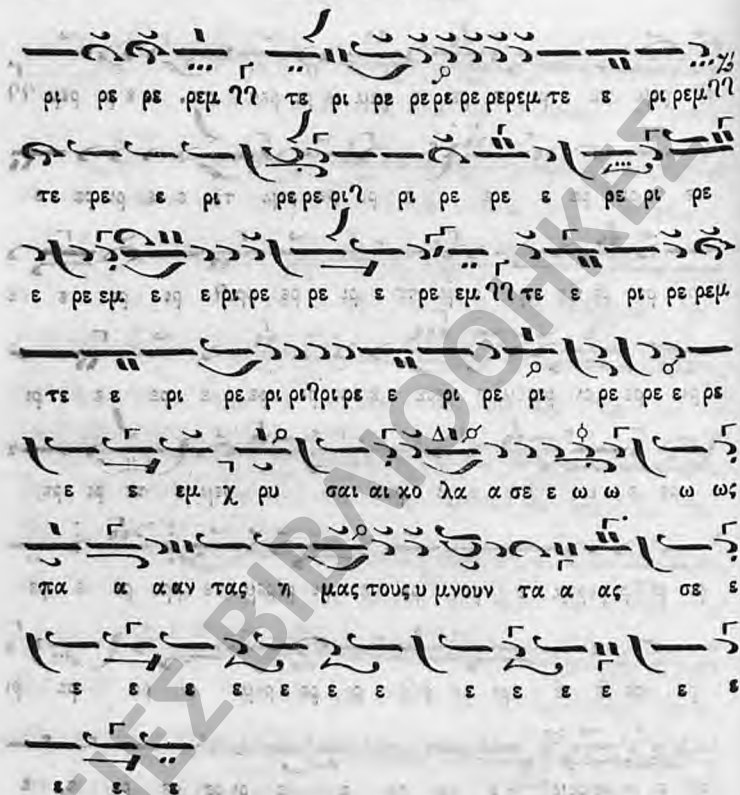 ρι ρε ρε ρεμ ϡϡ τε ρι ρε ρερερερερεμ τε ε ρι ρεμ
τε ρε ε ρι ρερερι ρι ρε ρε ε ρε ρι ρε
ε ρε εμ ε ε ρι ρε ρε ε ρε εμ τε ε ρι ρε ρεμ
τε ε ρι ρε ρι ρι ρι ρε ε ρι ρε ρι ρε ρε ε ρε
ε ε εμ χ ρυ σαι αι κο λα α σε ε ω ω ω ως
πα α α αν τας η μας τους υ μνουν τα α ας σε ε
ε ε ε ε ε ε ε ε ε ε ε ε ε ε
ε ε ε
ΒΙΒΛΙΟΘΗΚΕΣ